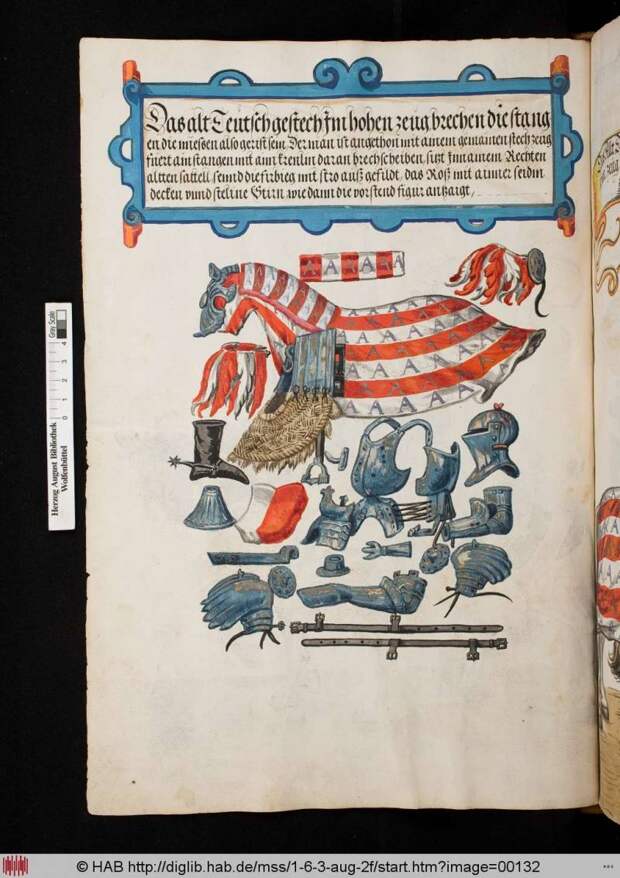 Das alt Teutsch gestech Im hohen zeug brechen die stang
en die miessen also gerist sein Der man ist angethon mit ainem gemainen stech zeug
fiert ain stangen mit ain krenlin daran brechscheiben sitzt Jnn ainem Rechten
altten sattell seinnd die firbieg mit stro auß gefildt, das Roß mit arimer seidin
decken vnnd steline Stirn wie dann die vorstend figur antzaigt,
A A A A A
Herzog August Bibliothek
Wolfenbüttel
0 1 2 3 4
Gray Scale
© HAB http://diglib.hab.de/mss/1-6-3-aug-2f/start.htm?image=00132